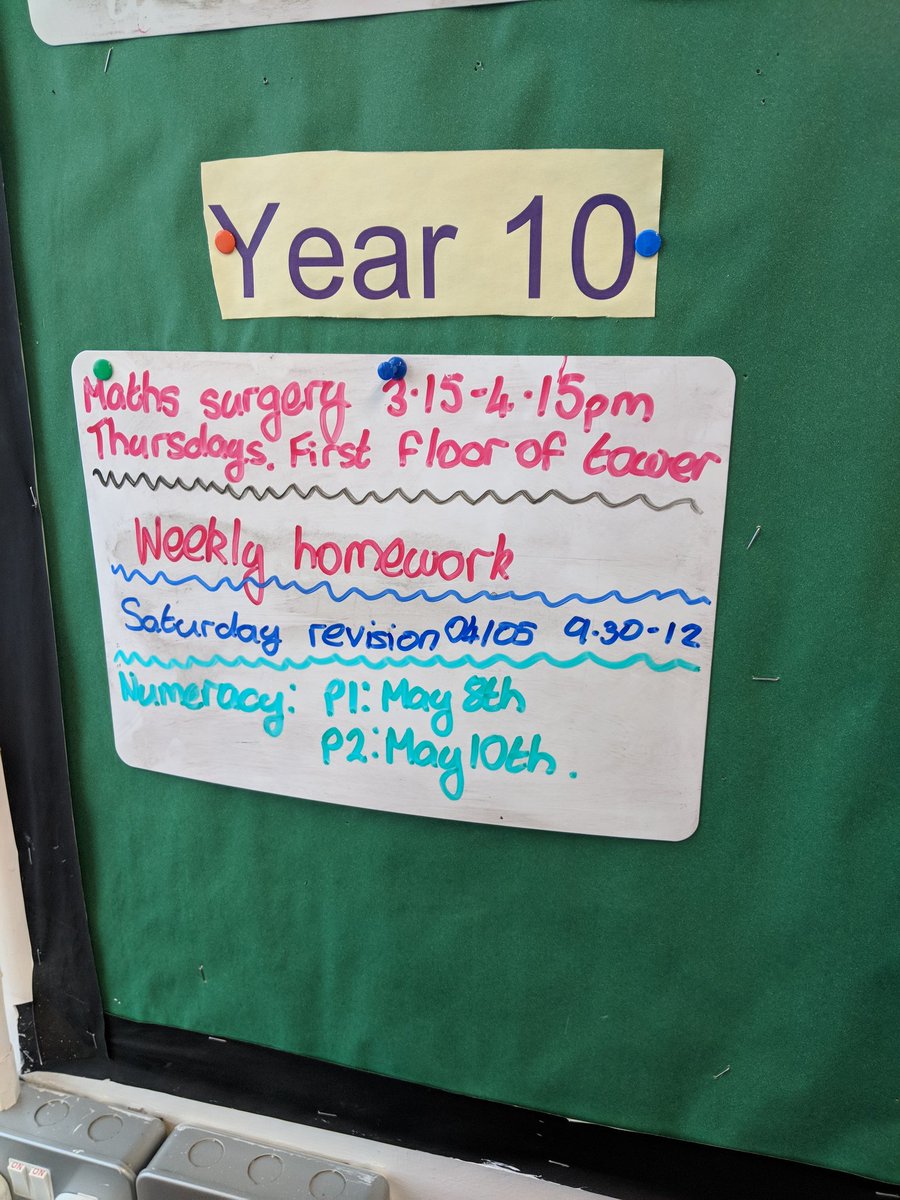 Year 10
Maths surgery 3.15-4.15pm
Thursdays. First floor of tower
Weekly homework
Saturday revision 04/05 9.30-12
Numeracy: P1: May 8th
P2: May 10th.
ON ON